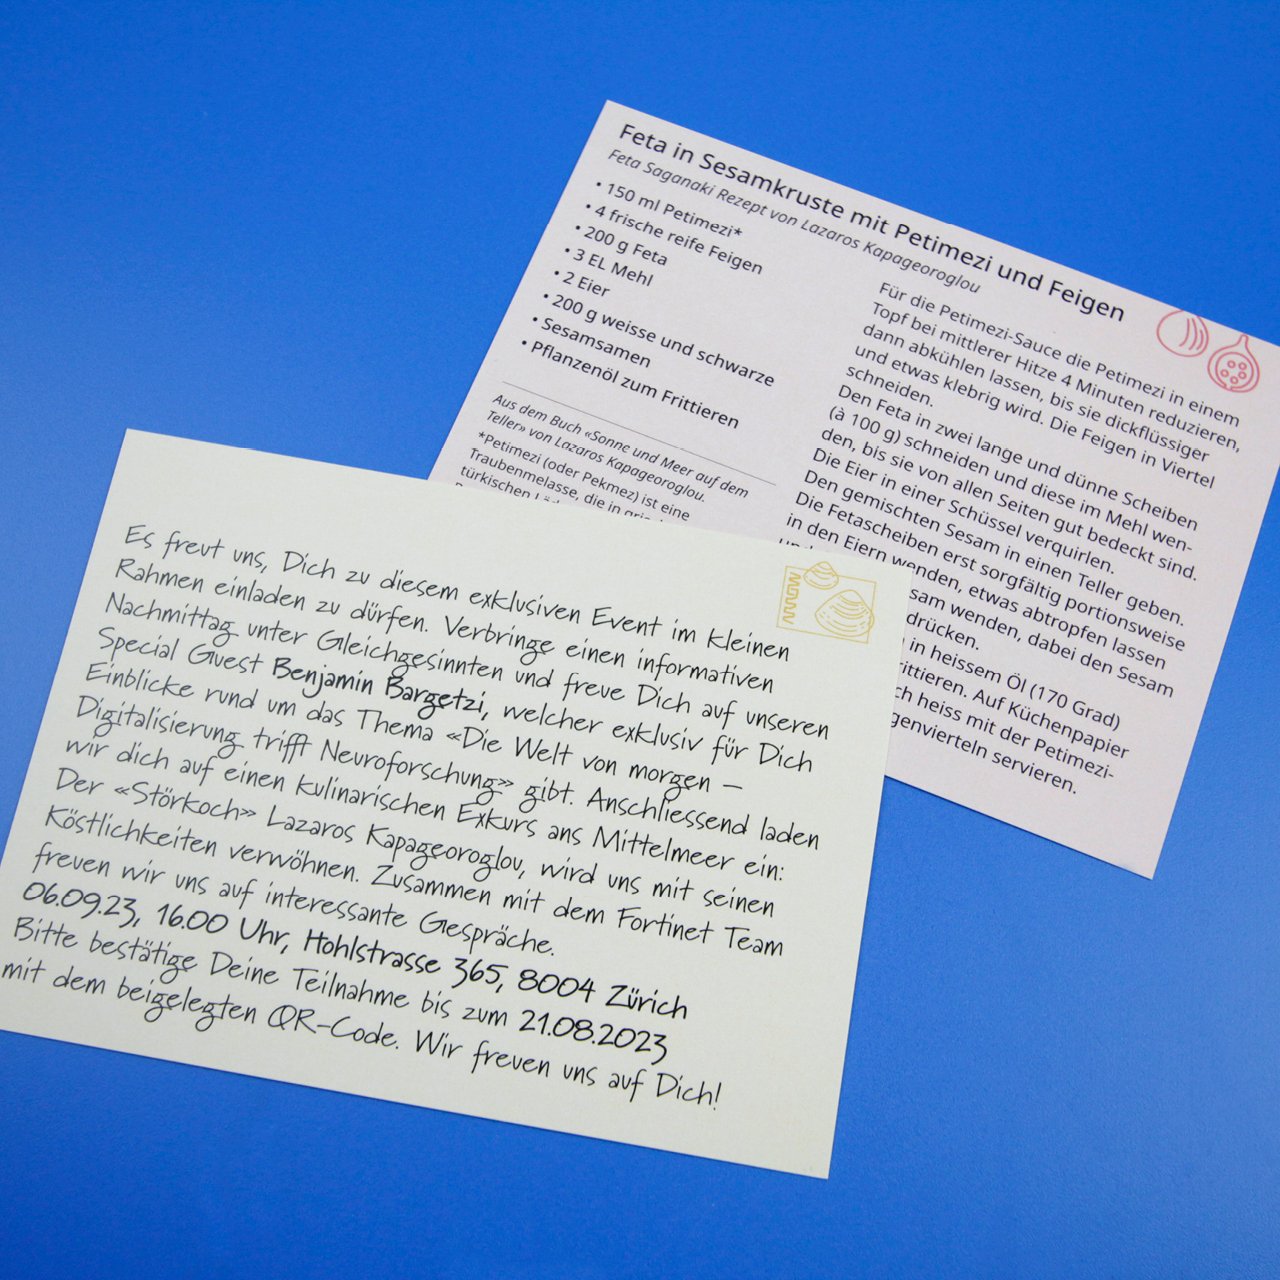 Feta in Sesamkruste mit Petimezi und Feigen
Feta Saganaki Rezept von Lazaros Kapageoroglou
• 150 ml Petimezi*
• 4 frische reife Feigen
• 200 g Feta
• 3 EL Mehl
• 2 Eier
• 200 g weisse und schwarze
• Sesamsamen
• Pflanzenöl zum Frittieren
Aus dem Buch «Sonne und Meer auf dem
Teller» von Lazaros Kapageoroglou.
*Petimezi (oder Pekmez) ist eine
Traubenmelasse, die in
türkischen
Für die Petimezi-Sauce die Petimezi in einem
Topf bei mittlerer Hitze 4 Minuten reduzieren,
dann abkühlen lassen, bis sie dickflüssiger
und etwas klebrig wird. Die Feigen in Viertel
schneiden.
Den Feta in zwei lange und dünne Scheiben
(à 100 g) schneiden und diese im Mehl wen-
den, bis sie von allen Seiten gut bedeckt sind.
Die Eier in einer Schüssel verquirlen.
Den gemischten Sesam in einen Teller geben.
Die Fetascheiben erst sorgfältig portionsweise
in den Eiern wenden, etwas abtropfen lassen
sam wenden, dabei den Sesam
drücken.
in heissem Öl (170 Grad)
rittieren. Auf Küchenpapier
ch heiss mit der Petimezi-
genvierteln servieren.
Es freut uns, Dich zu diesem exklusiven Event im kleinen
Rahmen einladen zu dürfen. Verbringe einen informativen
Nachmittag unter Gleichgesinnten und freue Dich auf unseren
Special Guest Benjamin Bargetzi, welcher exklusiv für Dich
Einblicke rund um das Thema «Die Welt von morgen –
Digitalisierung trifft Neuroforschung» gibt. Anschliessend laden
wir dich auf einen kulinarischen Exkurs ans Mittelmeer ein:
Der «Störkoch» Lazaros Kapageoroglou, wird uns mit seinen
Köstlichkeiten verwöhnen. Zusammen mit dem Fortinet Team
freuen wir uns auf interessante Gespräche.
06.09.23, 16.00 Uhr, Hohlstrasse 365, 8004 Zürich
Bitte bestätige Deine Teilnahme bis zum 21.08.2023
mit dem beigelegten QR-Code. Wir freuen uns auf Dich!